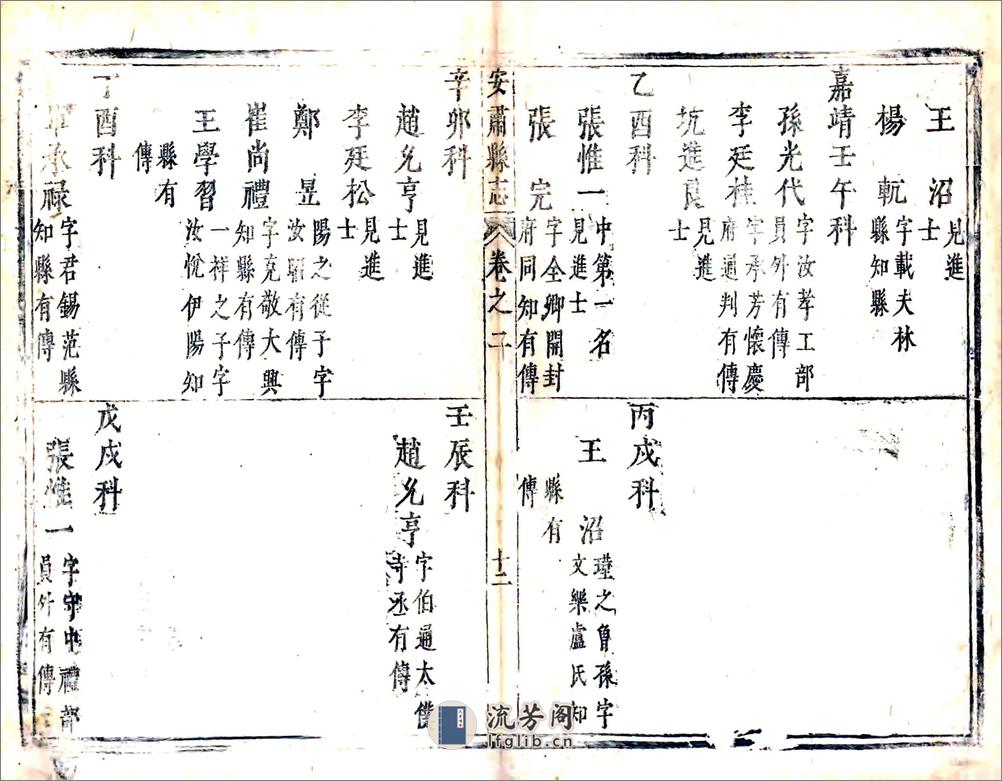 王沼見進士
楊䡄字載夫林縣知縣
嘉靖壬午科
孫光代字汝孝工部員外有傳
李廷桂字承芳懷慶府通判有傳
坑進良見進士
乙酉科
張惟一中第一名見進士
張完字全卿開封府同知有傳
丙戌科
王沼瑾之曾孫字文樂盧氏知縣有傳
安肅縣志
卷之二
十二
辛卯科
趙允亨見進士
李廷松見進士
鄭昱陽之從子字汝有傳
崔尚禮字克敬大興知縣有傳
王學習一祥之子字汝悅伊陽知縣有傳
丁酉科
承祿字君錫范縣知縣有傳
壬辰科
趙允亨字伯通太僕寺丞有傳
戊戌科
張惟一字守中禮部員外有傳
流芳阁
lfglib.cn